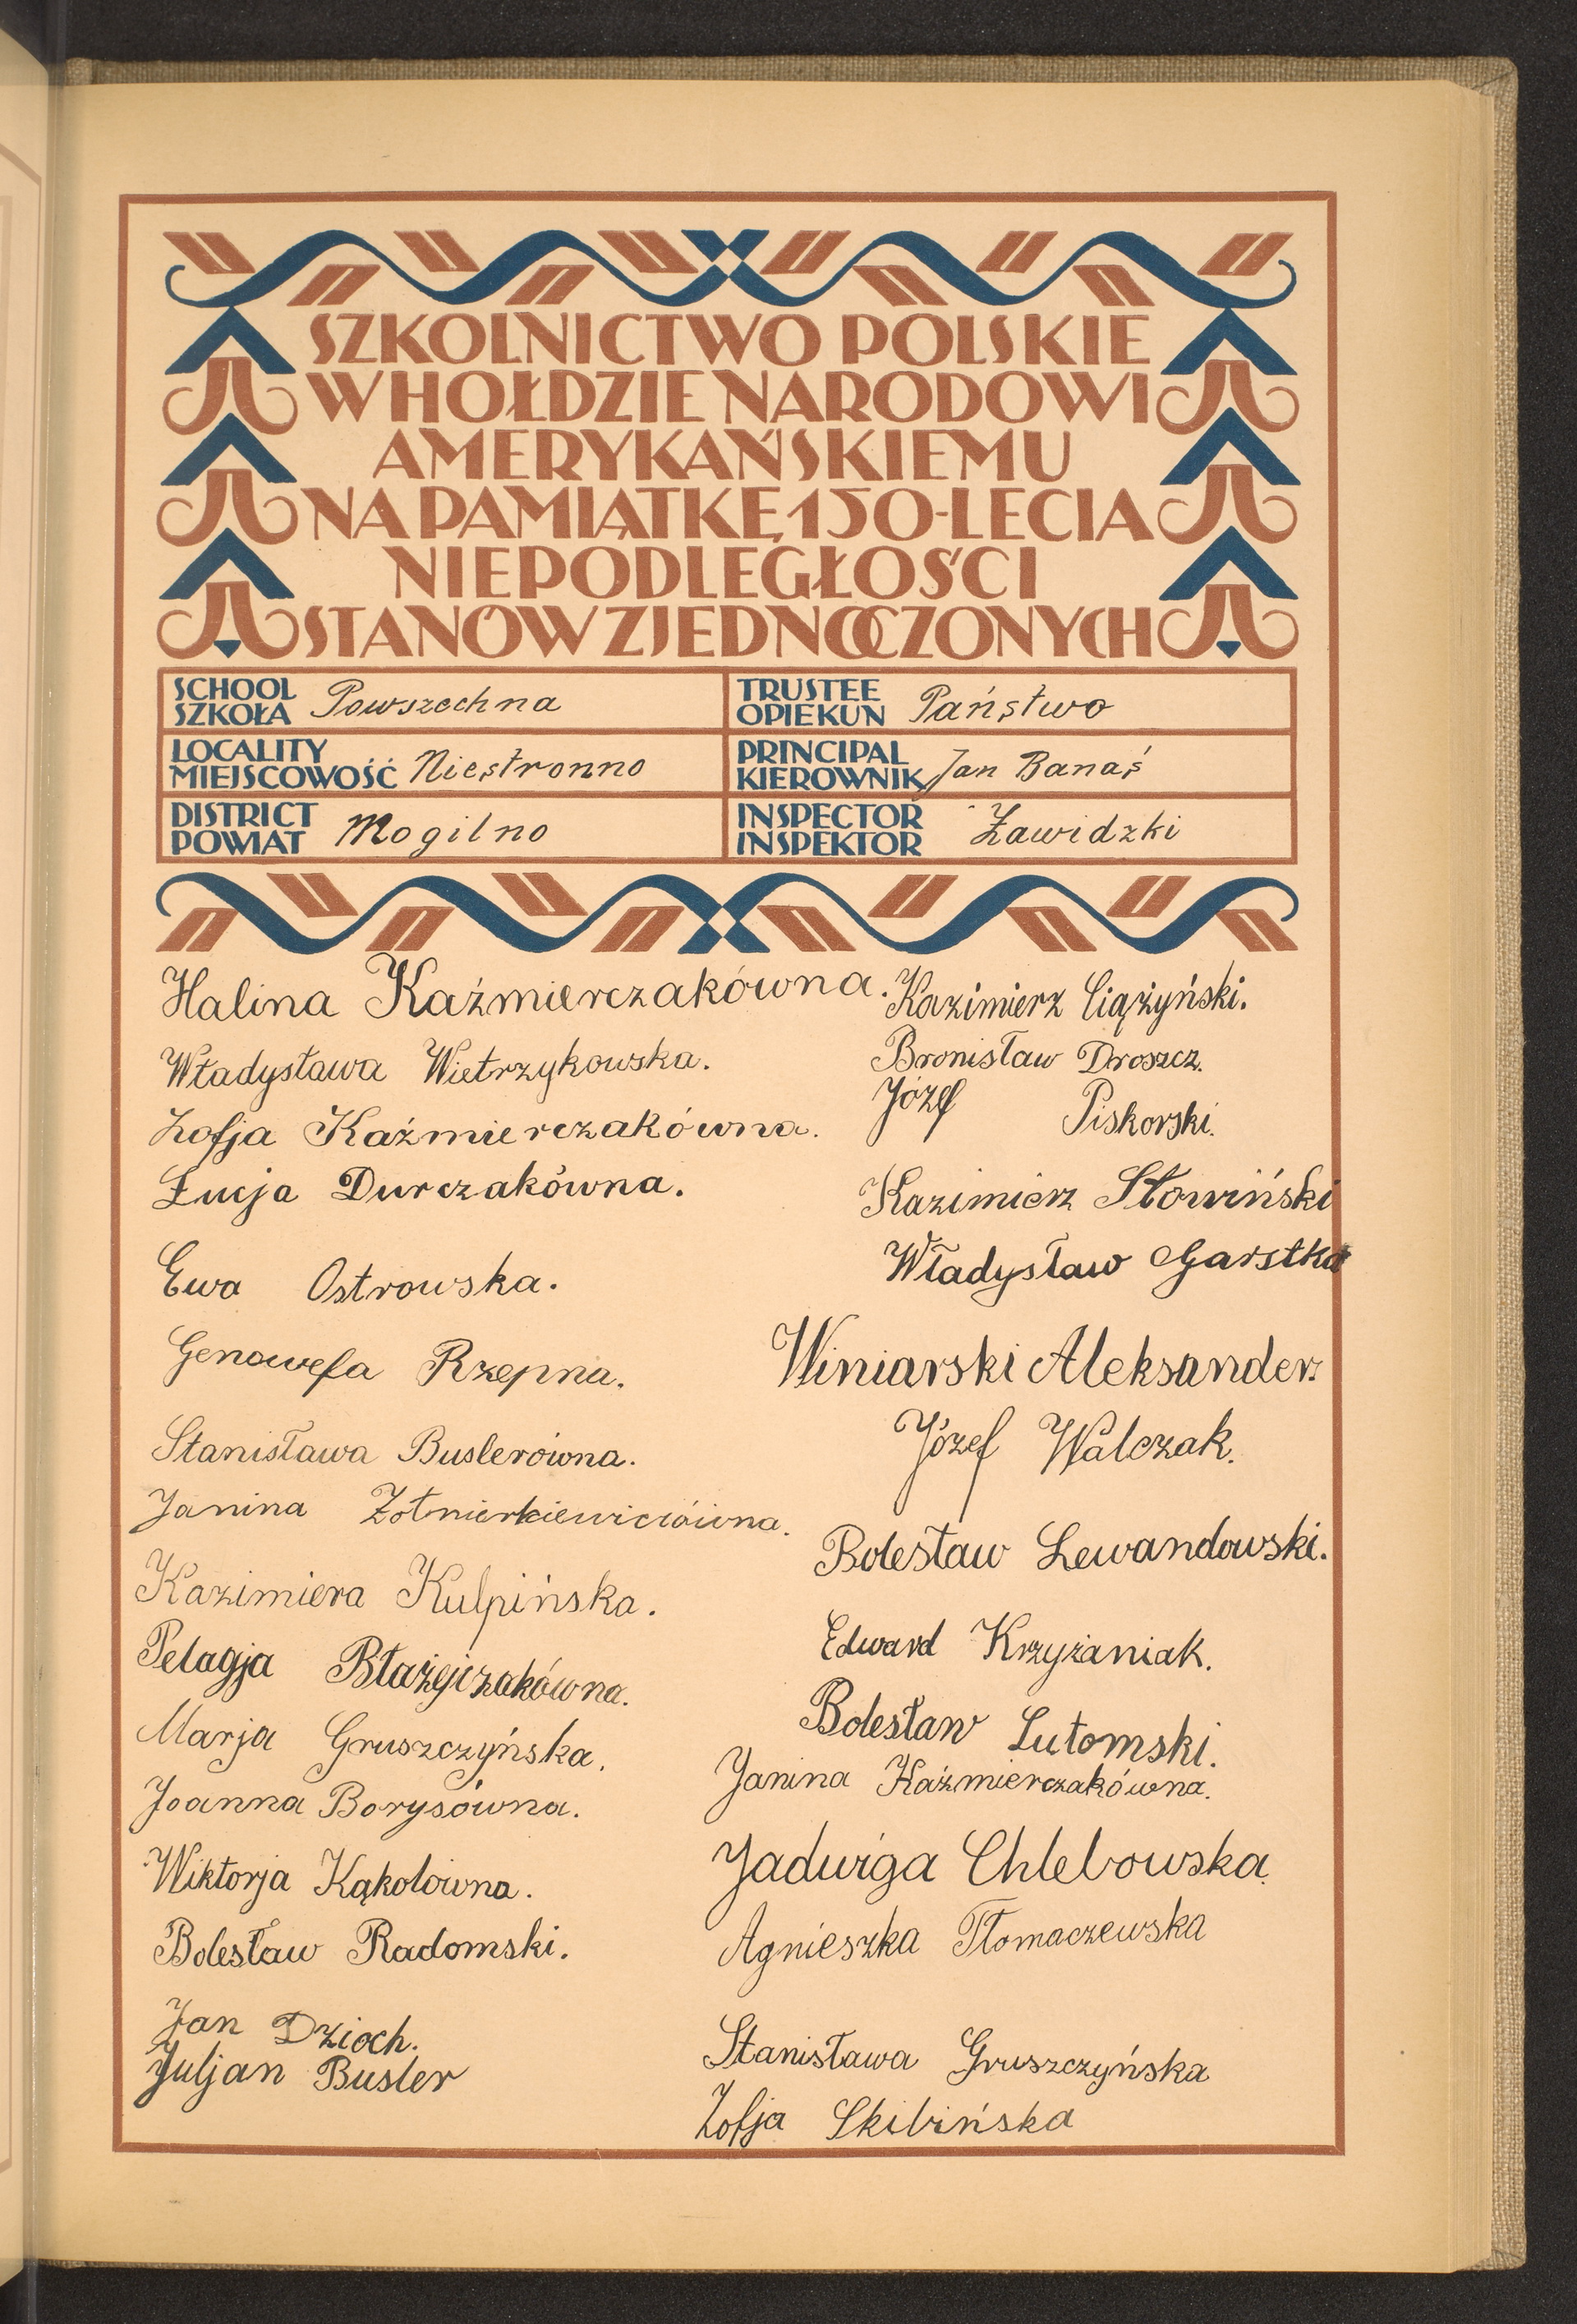 SZKOLNICTWO POLSKIE
W HOŁDZIE NARODOWI
AMERYKAŃSKIEMU
NA PAMIĄTKĘ 150-LECIA
NIEPODLEGŁOŚCI
STANÓW ZJEDNOCZONYCH
SCHOOL
SZKOŁA Powszechna
TRUSTEE
OPIEKUN Państwo
LOCALITY
MIEJSCOWOŚĆ Niestronno
PRINCIPAL
KIEROWNIK Jan Banaś
DISTRICT
POWIAT Mogilno
INSPECTOR
INSPEKTOR Zawidzki
Halina Kaźmierczakówna.
Władysława Wietrzykowska.
Zofja Kaźmierczakówna.
Łucja Durczakówna.
Ewa Ostrowska.
Genowefa Rzepna.
Stanisława Buslerówna.
Janina Żołnierkiewiczówna.
Kazimiera Kulpińska.
Pelagja Błażejczakówna.
Marja Gruszczyńska.
Joanna Borysówna.
Wiktorja Kąkolówna.
Bolesław Radomski.
Jan Dzioch.
Juljan Busler
Kazimierz Ciążyński.
Bronisław Droszcz.
Józef Piskorski.
Kazimierz Słowiński
Władysław Garstka
Winiarski Aleksander.
Józef Walczak.
Bolesław Lewandowski.
Edward Krzyżaniak.
Bolesław Lutomski.
Janina Kaźmierczakówna.
Jadwiga Chlebowska.
Agnieszka Tłomaczewska
Stanisława Gruszczyńska
Zofja Skibińska